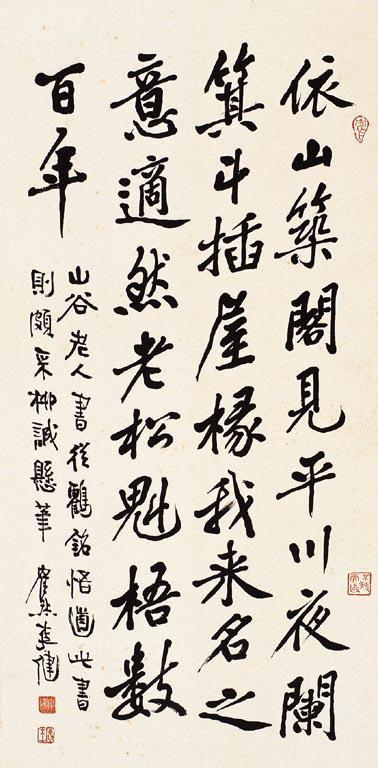 依山築閣見平川夜闌
箕斗插屋椽我来名之
意適然老松魁梧數
百年
山谷老人書從鶴銘悟道此書
則頗采柳誠懸筆
然李健